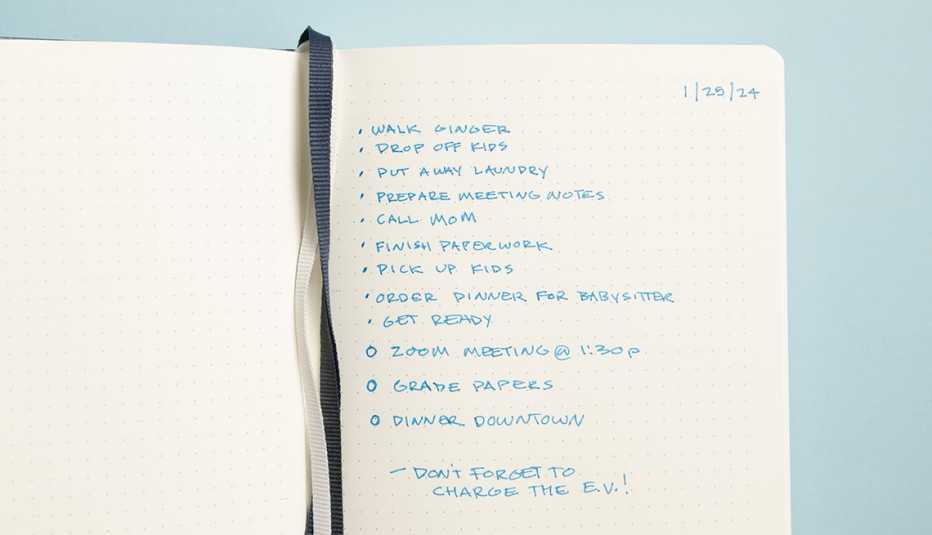 1/25/24
• WALK GINGER
• DROP OFF KIDS
• PUT AWAY LAUNDRY
• PREPARE MEETING NOTES
• CALL MOM
• FINISH PAPERWORK
• PICK UP KIDS
• ORDER DINNER FOR BABYSITTER
• GET READY
O ZOOM MEETING @ 1:30P
O GRADE PAPERS
O DINNER DOWNTOWN
— DON'T FORGET TO
CHARGE THE E.V.!